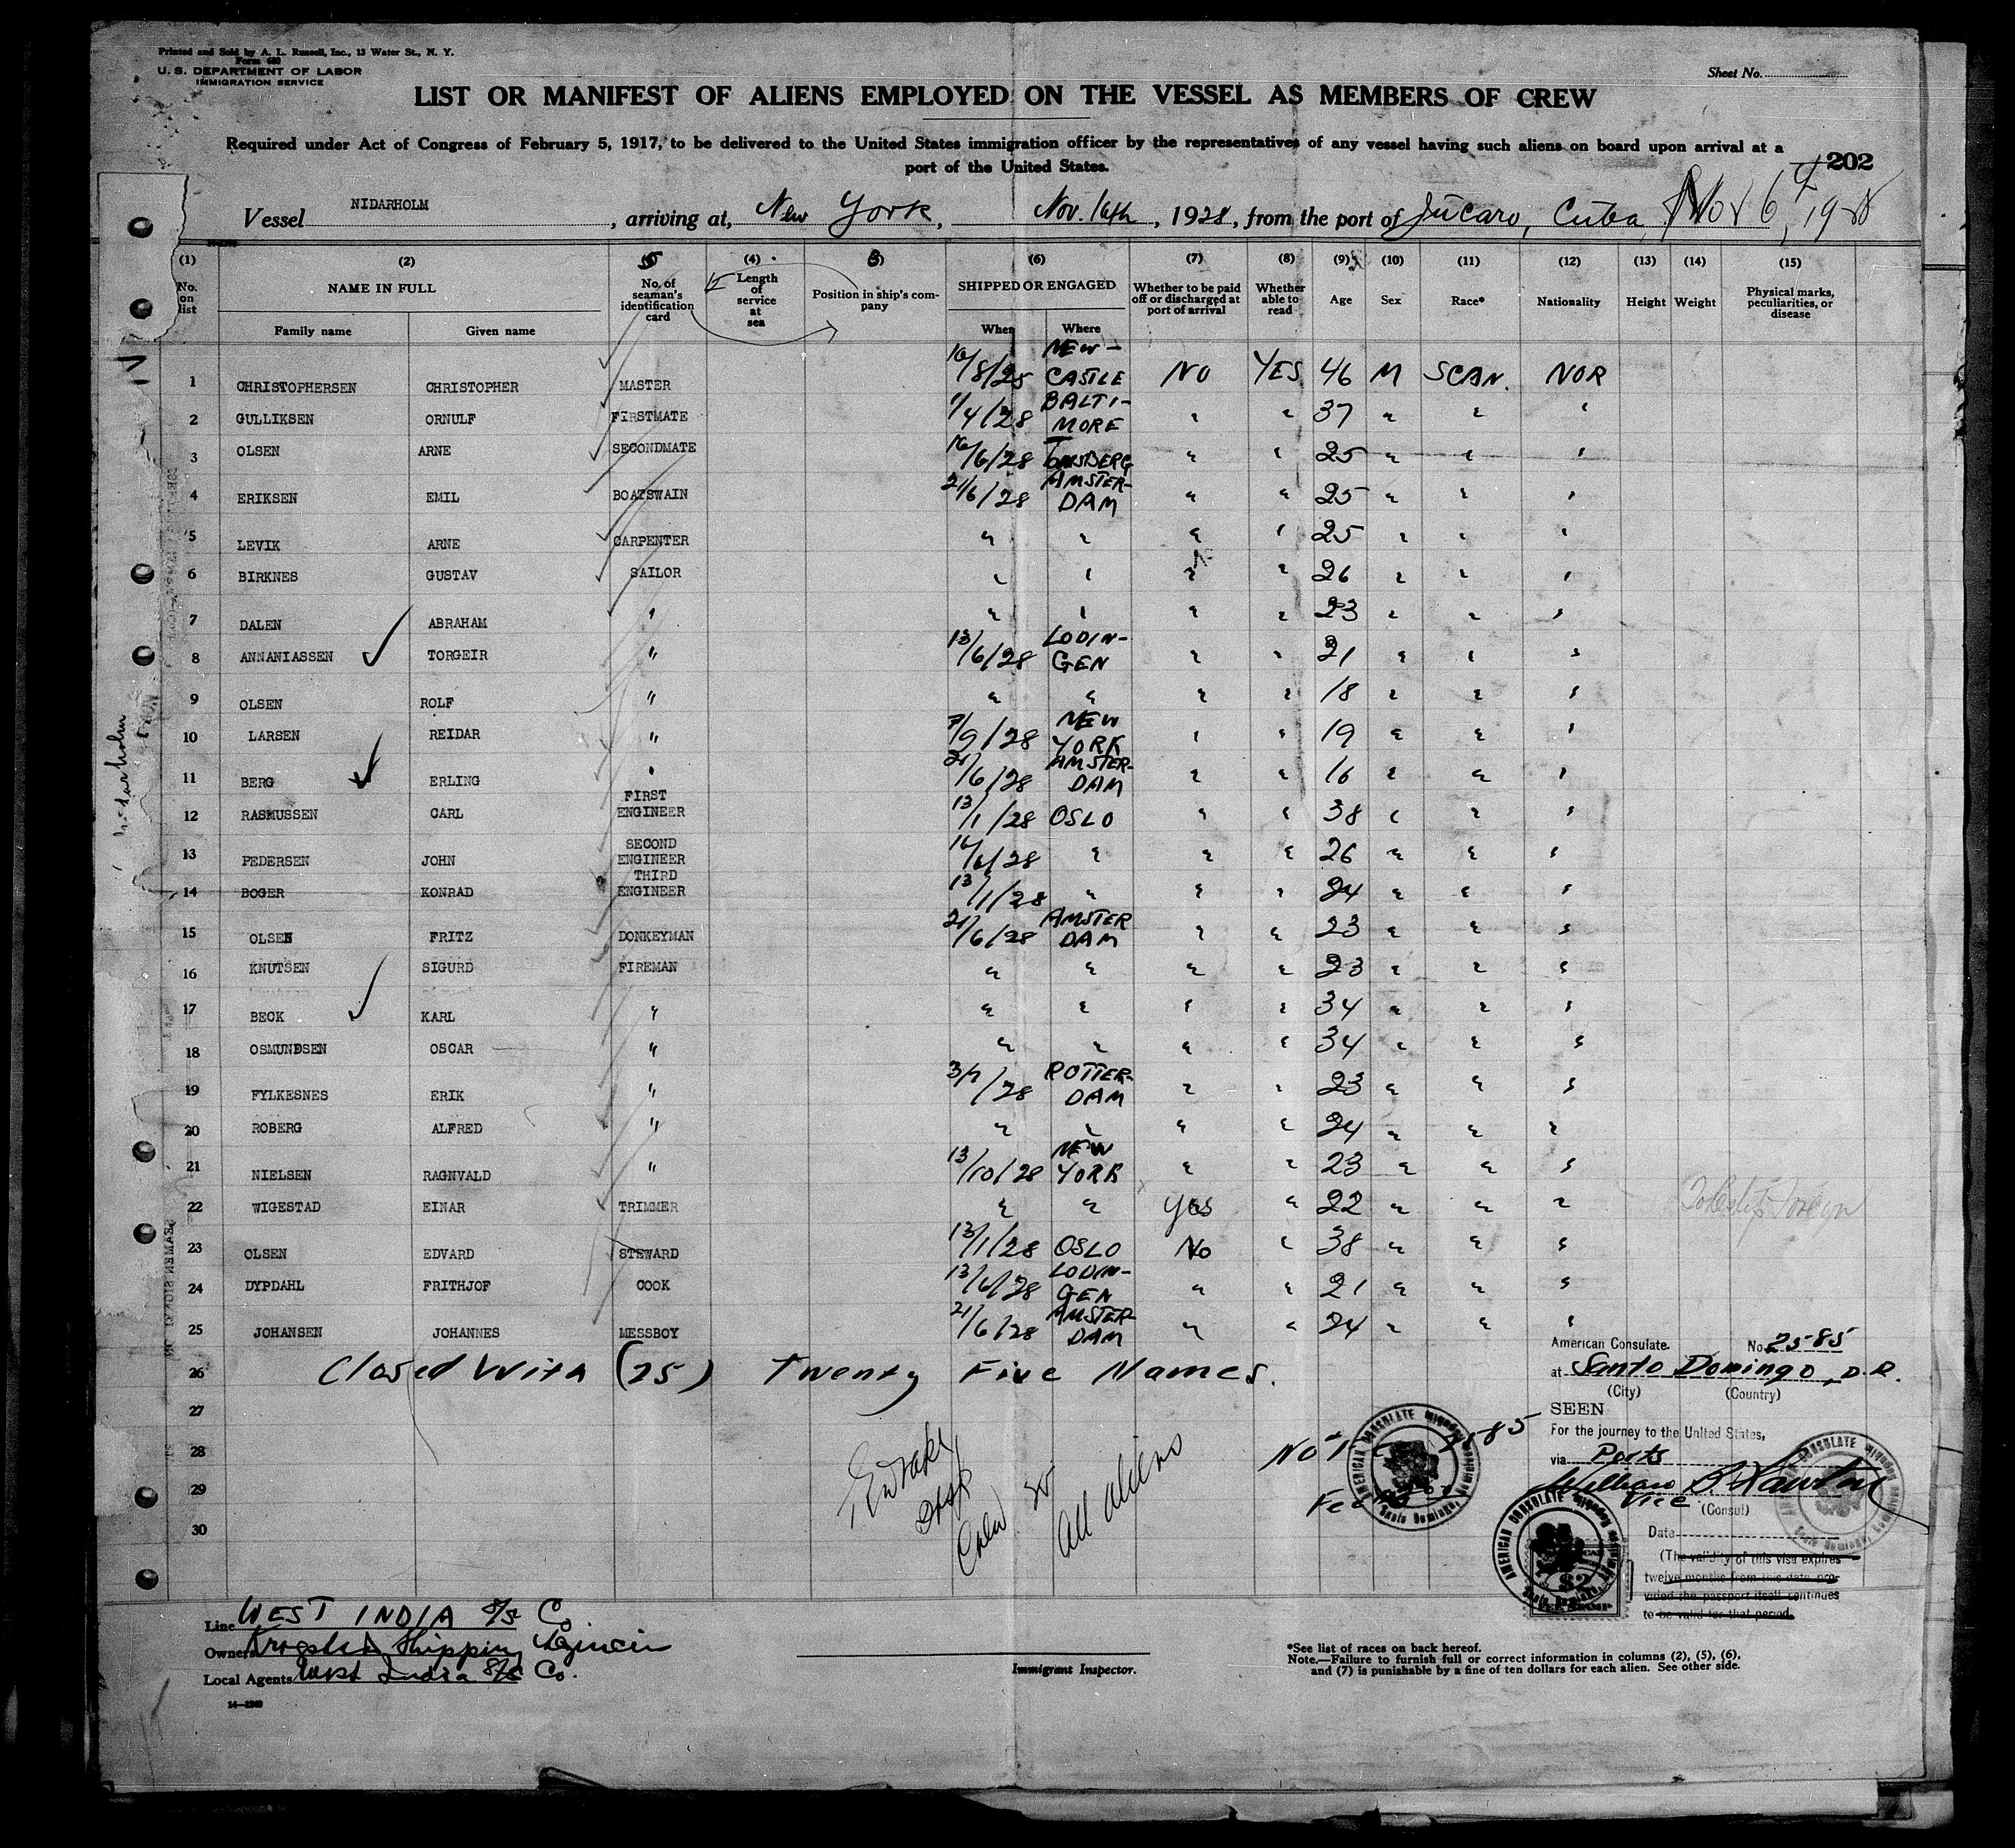 Printed and Sold by A. L. Russell, Inc., 13 Water St., N. Y.
Form 680
U. S. DEPARTMENT OF LABOR
IMMIGRATION SERVICE
Sheet No.
LIST OR MANIFEST OF ALIENS EMPLOYED ON THE VESSEL AS MEMBERS OF CREW
Required under Act of Congress of February 5, 1917, to be delivered to the United States immigration officer by the representatives of any vessel having such aliens on board upon arrival at a
port of the United States.
202
Vessel NIDARHOLM, arriving at, New York, Nov. 16th, 1928, from the port of Jucaro, Cuba, Nov 6th, 1928
(1) (2) 5 (4) 3 (6) (7) (8) (9) (10) (11) (12) (13) (14) (15)
No. on list NAME IN FULL No. of seaman's identification card Length of service at sea Position in ship's company SHIPPED OR ENGAGED Whether to be paid off or discharged at port of arrival Whether able to read Age Sex Race* Nationality Height Weight Physical marks, peculiarities, or disease
Family name Given name When Where
1 CHRISTOPHERSEN CHRISTOPHER MASTER 16/8/25 NEW-CASTLE NO YES 46 M SCAN. NOR
2 GULLIKSEN ORNULF FIRSTMATE 1/4/28 BALTI-MORE " " 37 " " "
3 OLSEN ARNE SECONDMATE 16/6/28 TONSBERG " " 25 " " "
4 ERIKSEN EMIL BOATSWAIN 21/6/28 AMSTER-DAM " " 25 " " "
5 LEVIK ARNE CARPENTER " " " " 25 " " "
6 BIRKNES GUSTAV SAILOR " " " " 26 " " "
7 DALEN ABRAHAM " " " " " 23 " " "
8 ANNANIASSEN TORGEIR " 13/6/28 LODIN-GEN " " 21 " " "
9 OLSEN ROLF " " " " " 18 " " "
10 LARSEN REIDAR " 7/9/28 NEW YORK " " 19 " " "
11 BERG ERLING " 21/6/28 AMSTER-DAM " " 16 " " "
12 RASMUSSEN CARL FIRST ENGINEER 13/1/28 OSLO " " 38 " " "
13 PEDERSEN JOHN SECOND ENGINEER 16/6/28 " " " 26 " " "
14 BOGER KONRAD THIRD ENGINEER 13/1/28 " " " 24 " " "
15 OLSEN FRITZ DONKEYMAN 21/6/28 AMSTER DAM " " 23 " " "
16 KNUTSEN SIGURD FIREMAN " " " " 23 " " "
17 BECK KARL " " " " " 34 " " "
18 OSMUNDSEN OSCAR " " " " " 34 " " "
19 FYLKESNES ERIK " 3/7/28 ROTTER-DAM " " 23 " " "
20 ROBERG ALFRED " " " " " 24 " " "
21 NIELSEN RAGNVALD " 13/10/28 NEW YORK " " 23 " " "
22 WIGESTAD EINAR TRIMMER " " Yes " 22 " " "
23 OLSEN EDVARD STEWARD 13/1/28 OSLO No " 38 " " "
24 DYPDAHL FRITHJOF COOK 13/6/28 LODIN-GEN " " 21 " " "
25 JOHANSEN JOHANNES MESSBOY 21/6/28 AMSTER-DAM " " 24 " " "
26 Closed With (25) Twenty Five Names.
27
28
29
30
Crew
All aliens
American Consulate. No. 2585
at Santo Domingo, D.R.
(City) (Country)
SEEN
For the journey to the United States,
via Ports
William B. Lawton
Vice (Consul)
Date
(The validity of this visa expires
twelve months from this date, pro-
vided the passport itself continues
to be valid for that period.
AMERICAN CONSULATE
Line WEST INDIA S/S Co
Owners Shipping
Local Agents West India S/S Co.
14—1240
Immigrant Inspector.
*See list of races on back hereof.
Note.—Failure to furnish full or correct information in columns (2), (5), (6),
and (7) is punishable by a fine of ten dollars for each alien. See other side.
Nidarholm